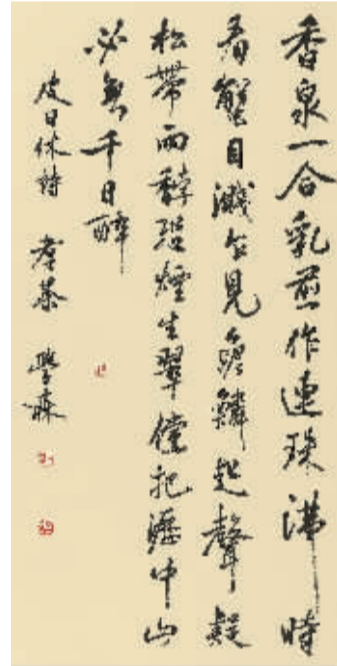 香泉一合乳煎作連珠沸時
看蟹目濺乍見魚鱗起聲疑
松帶雨餑恐煙生翠儻把瀝中山
必無千日醉
皮日休詩 煮茶 學森